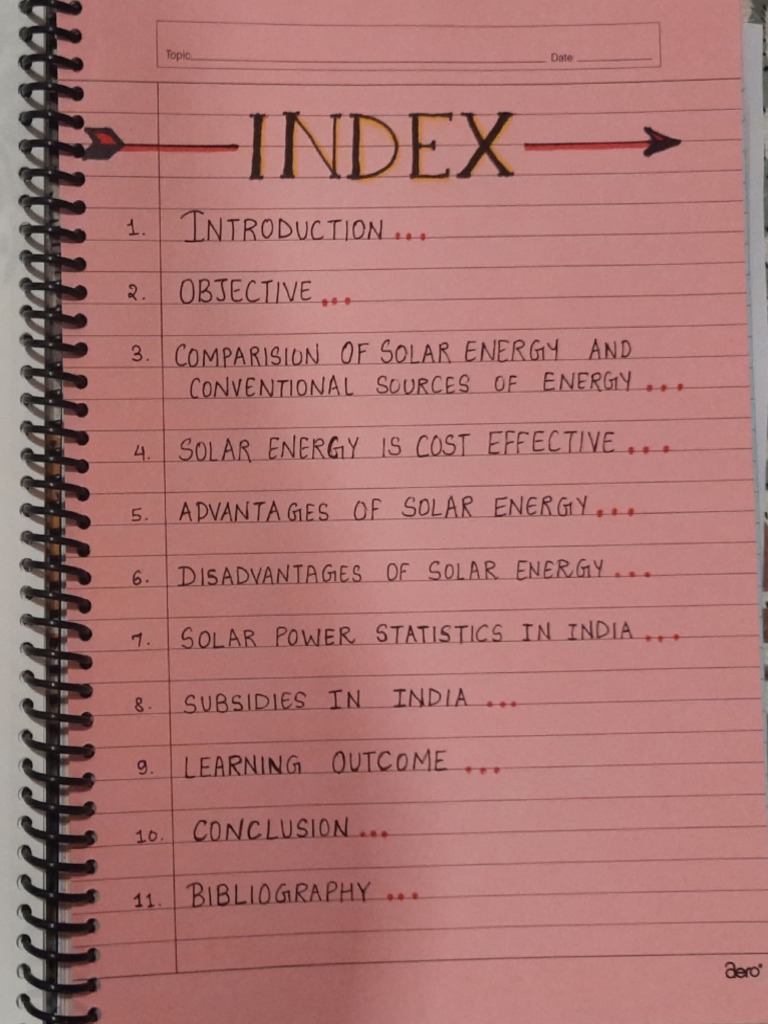 Topic Date
INDEX
1. INTRODUCTION...
2. OBJECTIVE...
3. COMPARISION OF SOLAR ENERGY AND
CONVENTIONAL SOURCES OF ENERGY...
4. SOLAR ENERGY IS COST EFFECTIVE...
5. ADVANTAGES OF SOLAR ENERGY...
6. DISADVANTAGES OF SOLAR ENERGY...
7. SOLAR POWER STATISTICS IN INDIA...
8. SUBSIDIES IN INDIA ...
9. LEARNING OUTCOME ...
10. CONCLUSION...
11. BIBLIOGRAPHY ...
aero